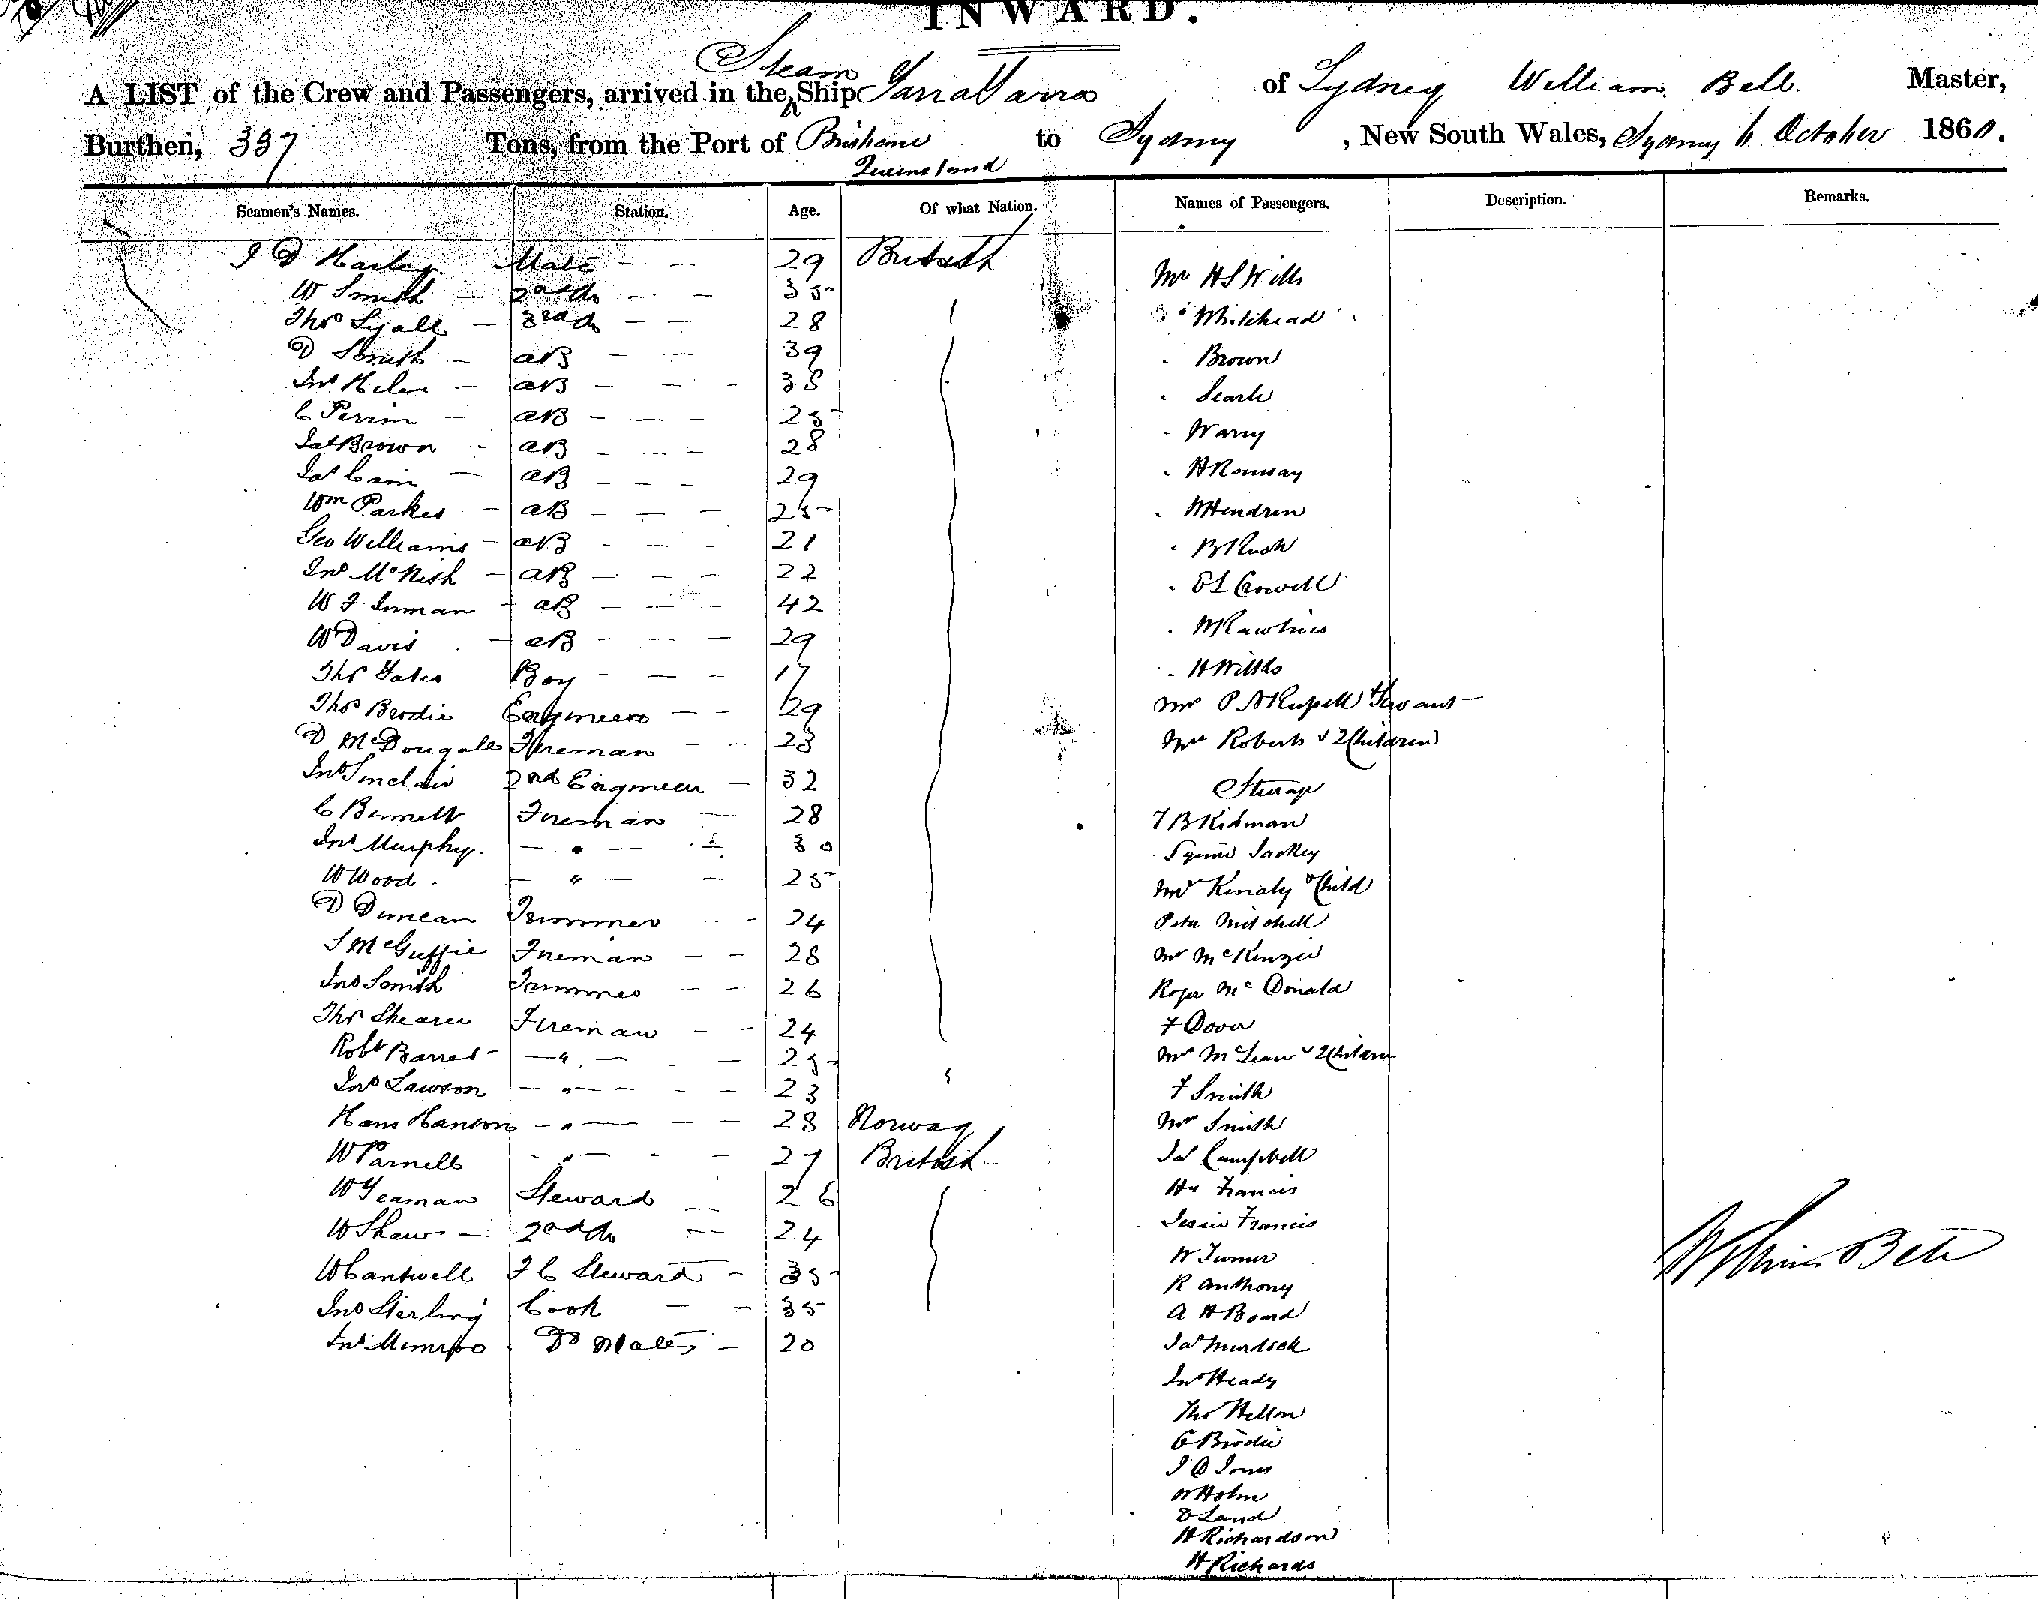 INWARD.
A LIST of the Crew and Passengers, arrived in the Steam Ship Yarra Yarra of Sydney William Bell Master,
Burthen, 337 Tons, from the Port of Brisbane Queensland to Sydney, New South Wales, Sydney 6 October 1860.
Seamen's Names. Station. Age. Of what Nation. Names of Passengers. Description. Remarks.
J D Harley Mate 29 British
W Smith 2nd do 35
Thos Lyall 3rd do 28
D Smith AB 39
Jno AB 38
C Perrin AB 25
Jas Brown AB 28
Jas Cain AB 29
Wm Parkes AB 25
Geo Williams AB 21
Jno McNish AB 22
W F Inman AB 42
W Davis AB 29
Thos Yates Boy 17
Thos Brodie Engineer 29
D McDougall Fireman 23
Jno Sinclair 2nd Engineer 32
C Bennett Fireman 28
Jno Murphy " 30
W Wood " 25
D Duncan Trimmer 24
J McGuffie Fireman 28
Jno Smith Trimmer 26
Thos Shearer Fireman 24
Robt Barret " 25
Jno Lawson " 23 "
Hans Hanson " 28 Norway
W Parnell " 27 British
W Yeaman Steward 26
W Shaw 2nd do 24
W Cantwell F C Steward 35
Jno Sterling Cook 35
Jno Munroo Do Mate 20
Mr H S Wills
" Whitehead
" Brown
" Searle
" Warry
" H Ramsay
" W Hendren
" B Rush
" E L
" W Rawlins
" H
Mr P N Russell & Servant
Mrs Roberts & 2 Children
Steerage
T B Kidman
Mrs & Child
Peter Mitchell
Mr McKenzie
Roger McDonald
F Dover
Mrs McLean & 2 Children
F Smith
Mr Smith
Jas Campbell
Hy Francis
Jessie Francis
W Turner
R Anthony
A H Board
Jas Murdoch
Jno Heady
Thos
G Brodie
J D Jones
W Holm
D Land
H Richardson
H Richards
William Bell